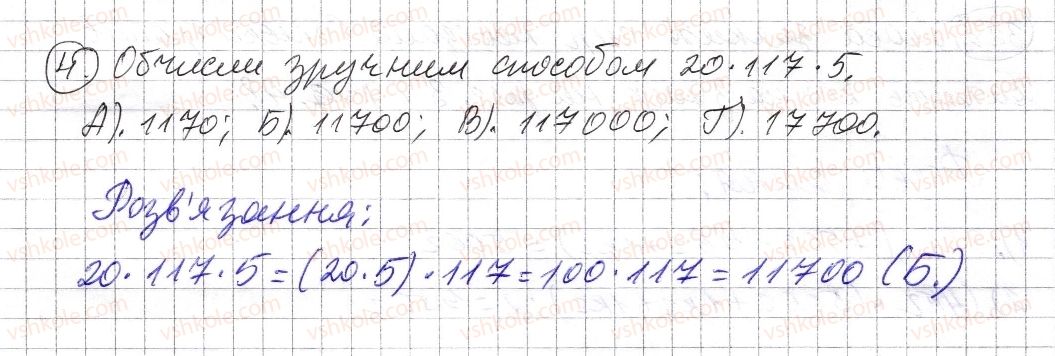 4. Обчисли зручним способом 20·117·5.
А). 1170; Б). 11700; В). 117000; Г). 17700.
Розв'язання:
20·117·5=(20·5)·117=100·117=11700 (Б.)